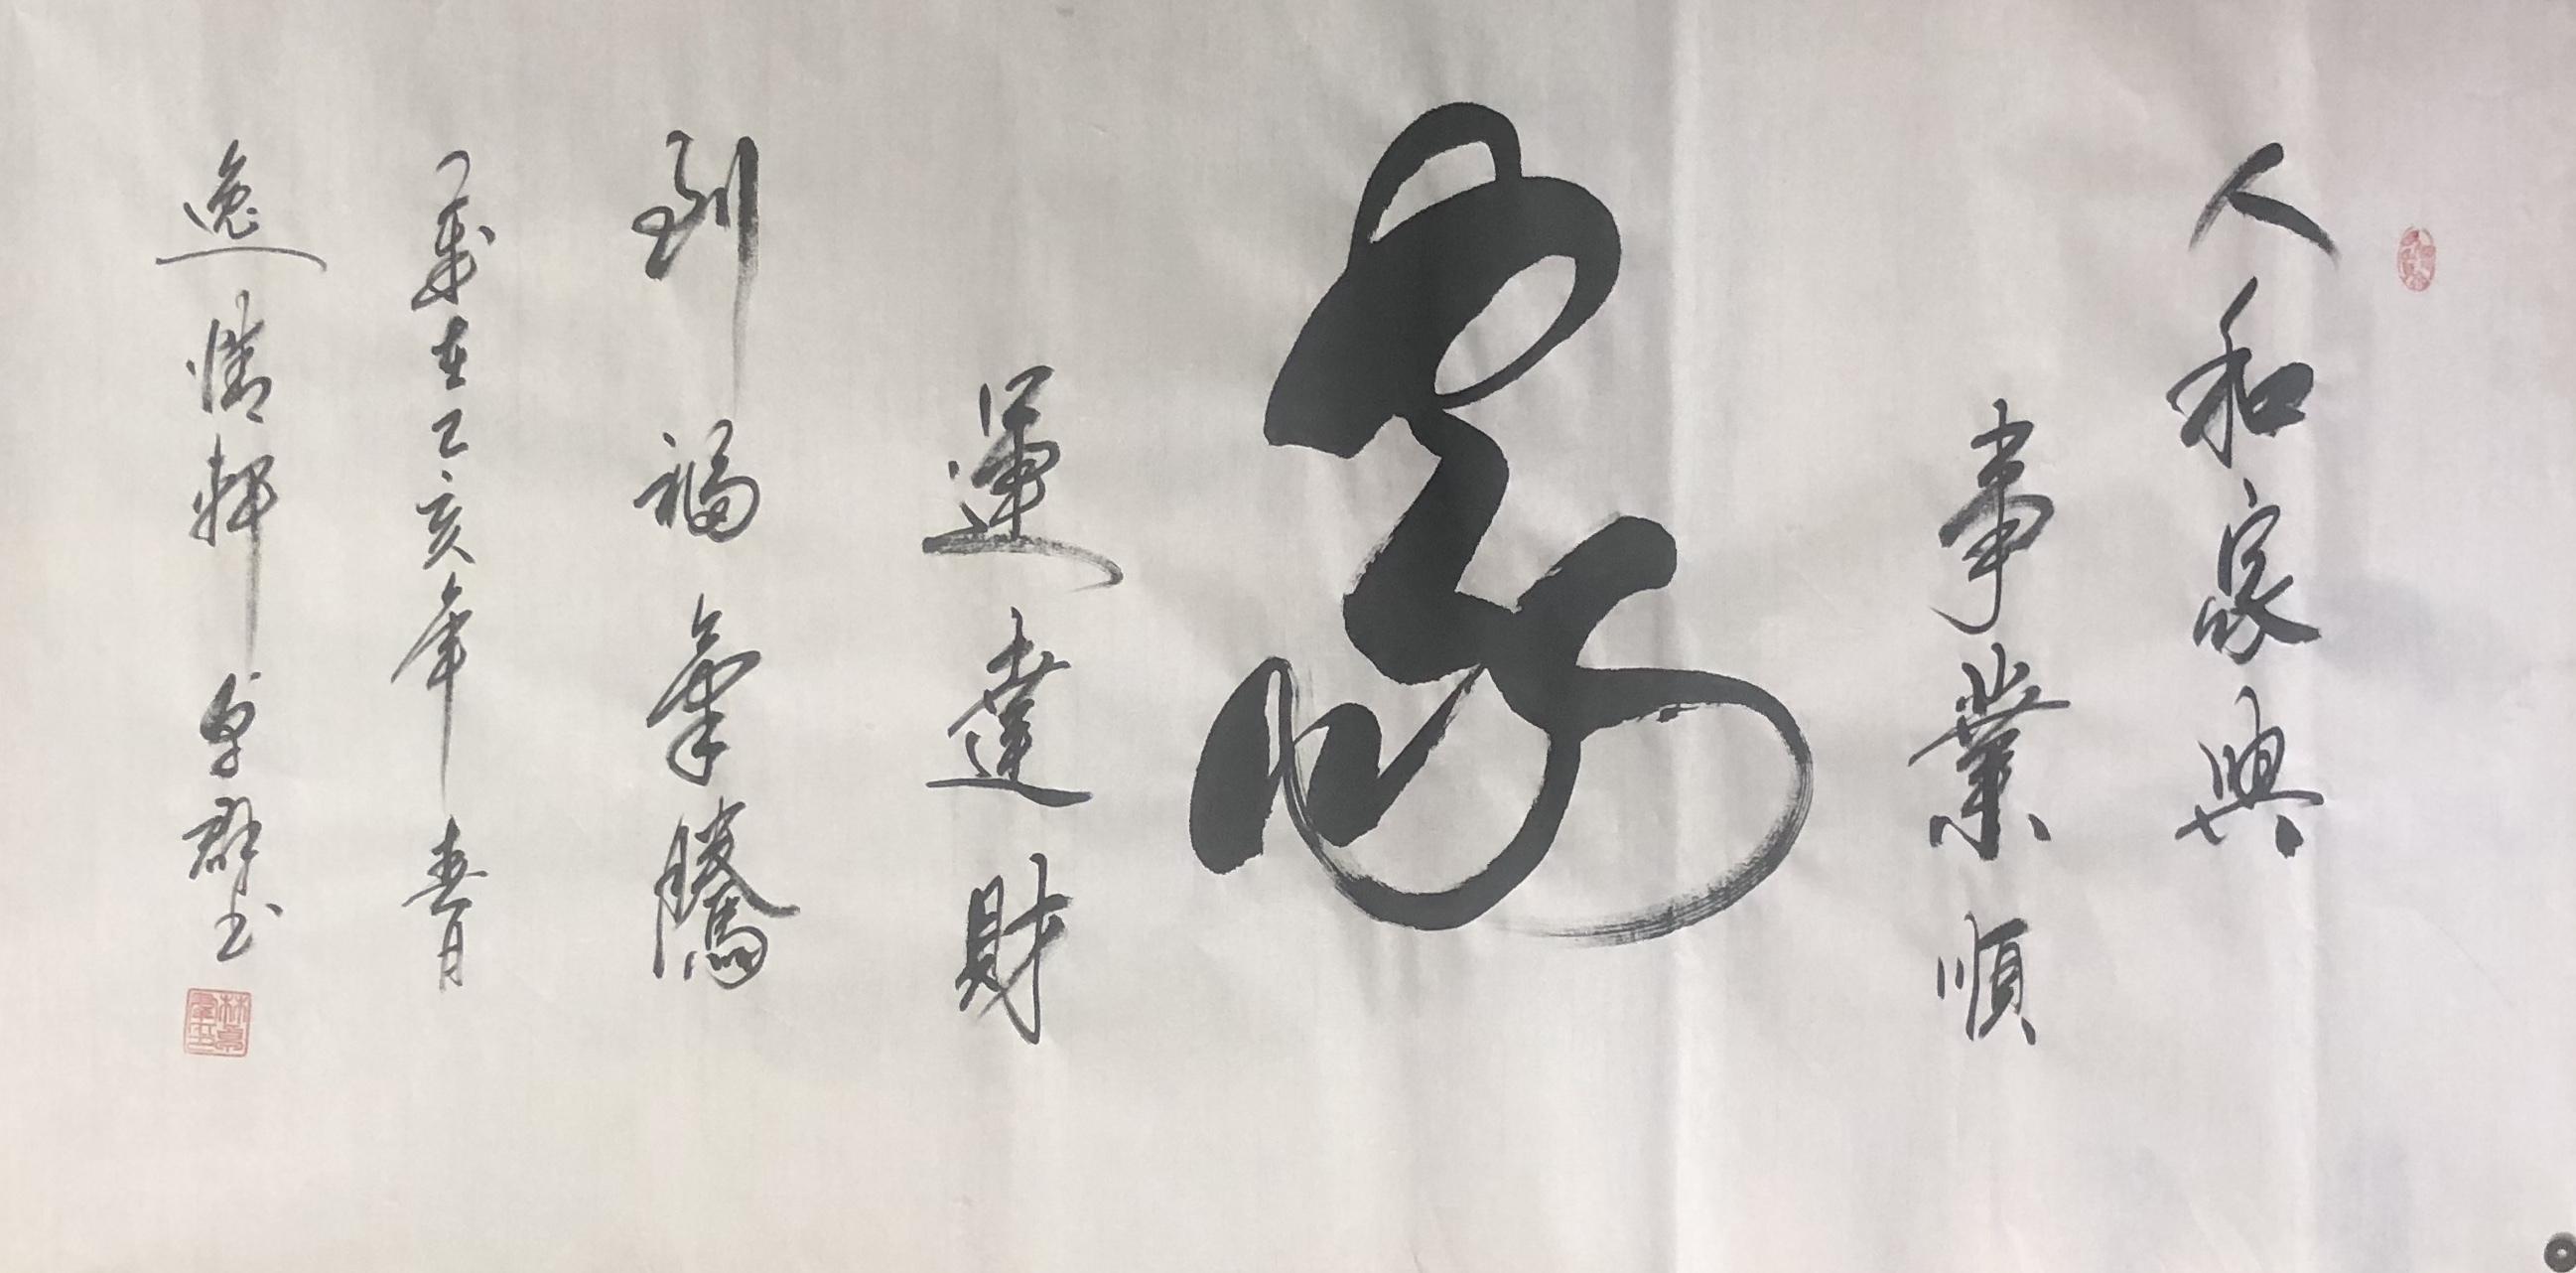 人和家興
事業順
家
運達財
到福氣騰
歲在己亥年春月
逸情軒 卓群書